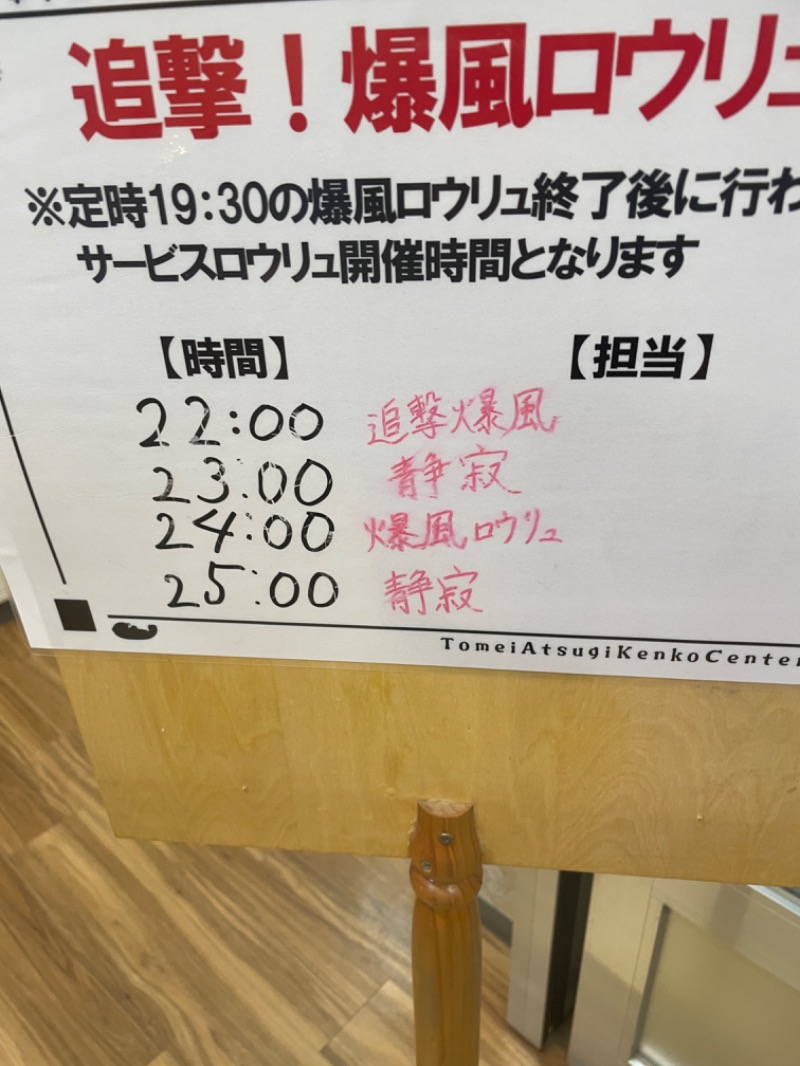 追撃！爆風ロウリュ
※定時19:30の爆風ロウリュ終了後に行わ
サービスロウリュ開催時間となります
【時間】 【担当】
22:00 追撃爆風
23:00 静寂
24:00 爆風ロウリュ
25:00 静寂
TomeiAtsugiKenkoCenter